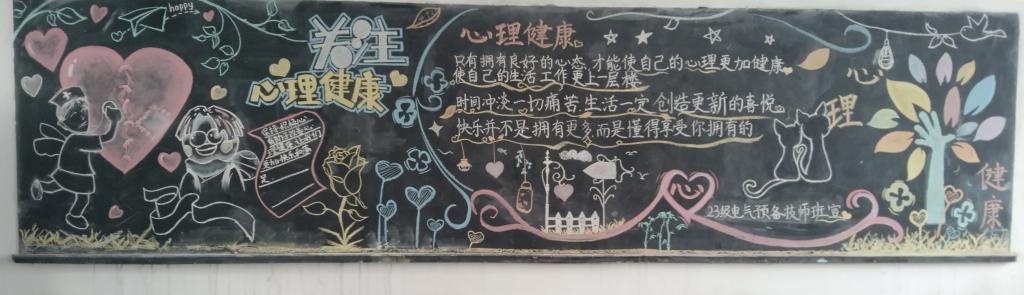 happy
关注
心理健康
心理健康
只有拥有良好的心态,才能使自己的心理更加健康
使自己的生活工作更上一层楼
时间冲淡一切痛苦,生活一定创造更新的喜悦
快乐并不是拥有更多而是懂得享受你拥有的
心
23级电气预备技师班宣
心
理
健
康